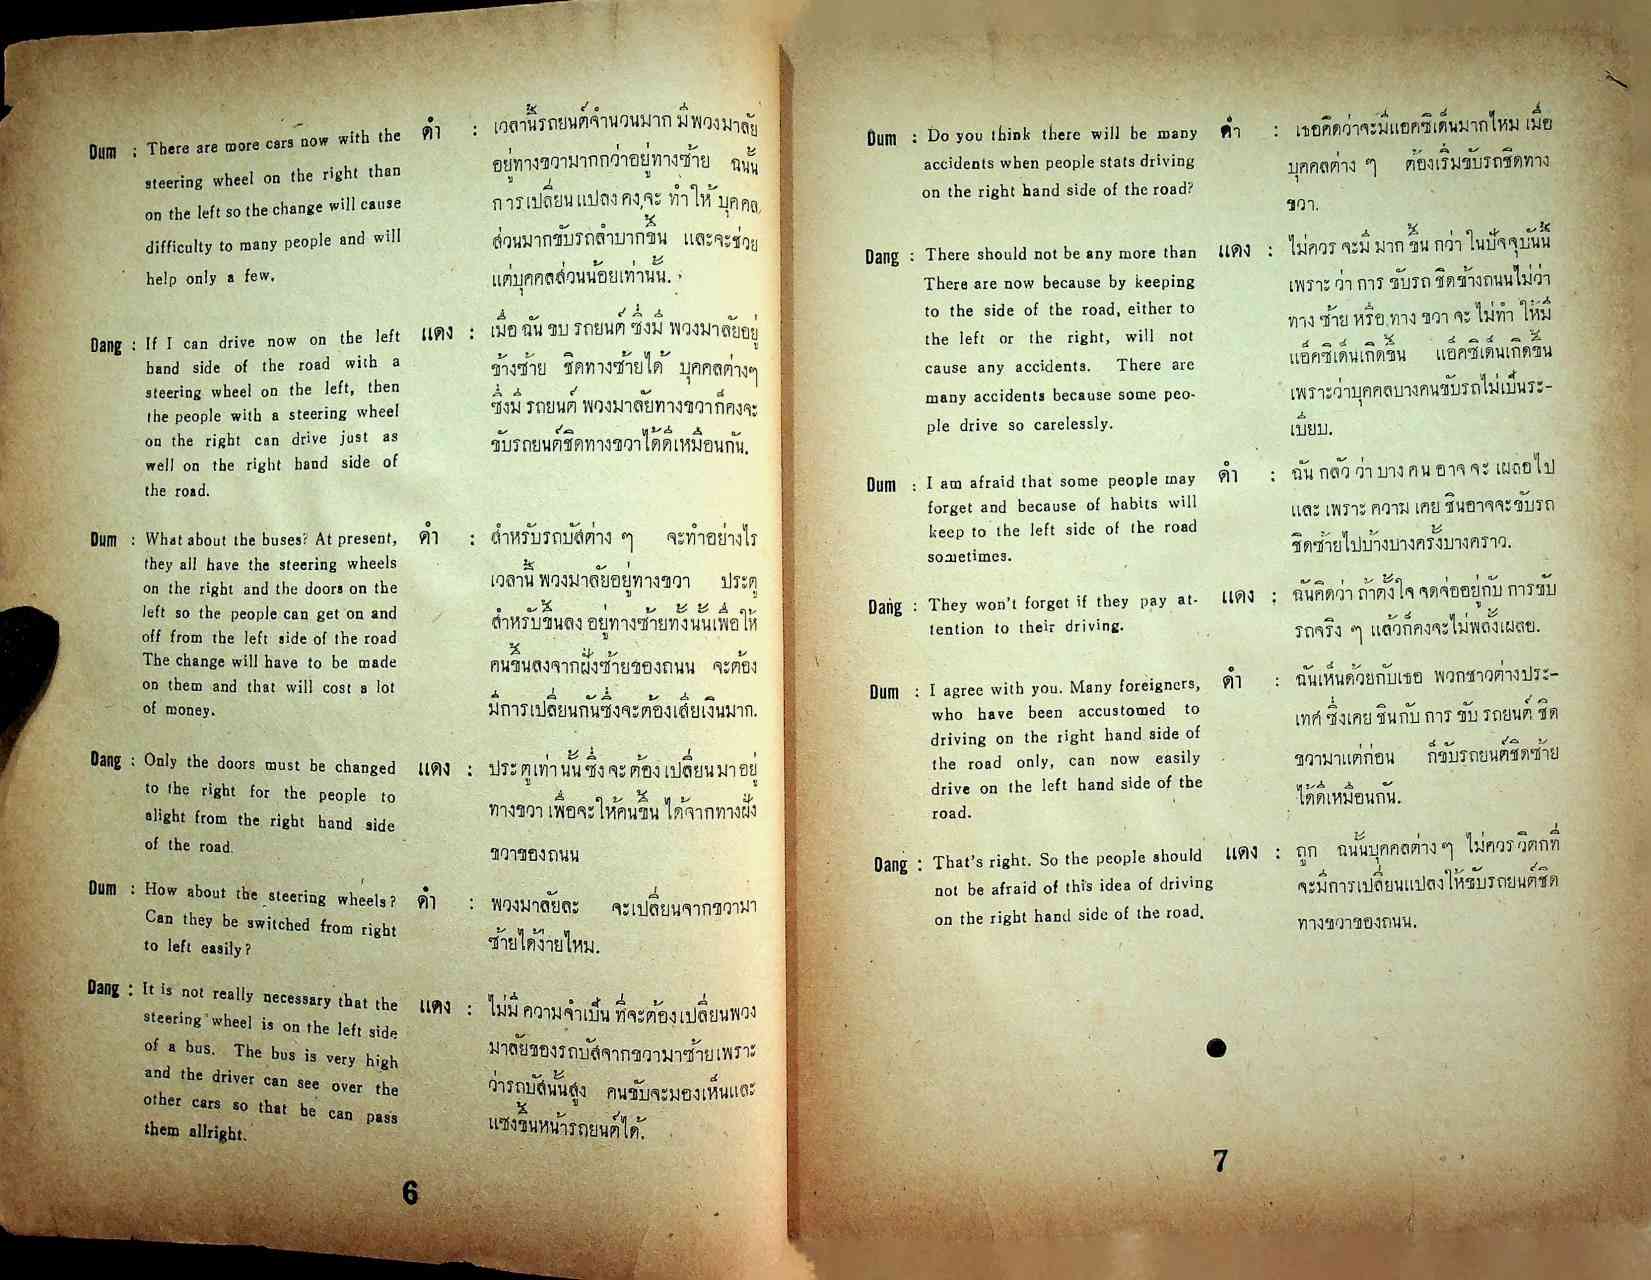 Dum : There are more cars now with the
steering wheel on the right than
on the left so the change will cause
difficulty to many people and will
help only a few.
ดำ : เวลานี้รถยนต์จำนวนมาก มีพวงมาลัย
อยู่ทางขวามากกว่าอยู่ทางซ้าย ฉนั้น
การเปลี่ยนแปลงคงจะ ทำให้ บุคคล
ส่วนมากขับรถลำบากขึ้น และจะช่วย
แต่บุคคลส่วนน้อยเท่านั้น.
Dang : If I can drive now on the left
hand side of the road with a
steering wheel on the left, then
the people with a steering wheel
on the right can drive just as
well on the right hand side of
the road.
แดง : เมื่อ ฉัน ขบ รถยนต์ ซึ่งมี พวงมาลัยอยู่
ข้างซ้าย ชิดทางซ้ายได้ บุคคลต่างๆ
ซึ่งมี รถยนต์ พวงมาลัยทางขวาก็คงจะ
ขับรถยนต์ชิดทางขวาได้ดีเหมือนกัน.
Dum : What about the buses? At present,
they all have the steering wheels
on the right and the doors on the
left so the people can get on and
off from the left side of the road
The change will have to be made
on them and that will cost a lot
of money.
ดำ : สำหรับรถบัสต่าง ๆ จะทำอย่างไร
เวลานี้ พวงมาลัยอยู่ทางขวา ประตู
สำหรับขึ้นลง อยู่ทางซ้ายทั้งนั้นเพื่อให้
คนขึ้นลงจากฝั่งซ้ายของถนน จะต้อง
มีการเปลี่ยนกันซึ่งจะต้องเสียเงินมาก.
Dang : Only the doors must be changed
to the right for the people to
alight from the right hand side
of the road.
แดง : ประตูเท่านั้น ซึ่ง จะ ต้อง เปลี่ยน มา อยู่
ทางขวา เพื่อจะให้คนขึ้น ได้จากทางฝั่ง
ขวาของถนน
Dum : How about the steering wheels?
Can they be switched from right
to left easily?
ดำ : พวงมาลัยละ จะเปลี่ยนจากขวามา
ซ้ายได้ง่ายไหม.
Dang : It is not really necessary that the
steering wheel is on the left side
of a bus. The bus is very high
and the driver can see over the
other cars so that he can pass
them allright.
แดง : ไม่มี ความจำเป็น ที่จะต้อง เปลี่ยนพวง
มาลัยของรถบัสจากขวามาซ้ายเพราะ
ว่ารถบัสนั้นสูง คนขับจะมองเห็นและ
แซงขึ้นหน้ารถยนต์ได้.
6
Dum : Do you think there will be many
accidents when people stats driving
on the right hand side of the road?
ดำ : เธอคิดว่าจะมีแอคซิเด็นมากไหม เมื่อ
บุคคลต่าง ๆ ต้องเริ่มขับรถชิดทาง
ขวา.
Dang : There should not be any more than
There are now because by keeping
to the side of the road, either to
the left or the right, will not
cause any accidents. There are
many accidents because some peo-
ple drive so carelessly.
แดง : ไม่ควร จะมี มาก ขึ้น กว่า ในปัจจุบันนี้
เพราะ ว่า การ ขับรถ ชิดข้างถนนไม่ว่า
ทาง ซ้าย หรือ ทาง ขวา จะ ไม่ทำ ให้มี
แอ็คซิเด็นเกิดขึ้น แอ็คซิเด็นเกิดขึ้น
เพราะว่าบุคคลบางคนขับรถไม่เป็นระ-
เบียบ.
Dum : I am afraid that some people may
forget and because of habits will
keep to the left side of the road
sometimes.
ดำ : ฉัน กลัว ว่า บาง คน อาจ จะ เผลอไป
และ เพราะ ความ เคย ชินอาจจะขับรถ
ชิดซ้ายไปบ้างบางครั้งบางคราว.
Dang : They won't forget if they pay at-
tention to their driving.
แดง : ฉันคิดว่า ถ้าตั้งใจ จดจ่ออยู่กับ การขับ
รถจริง ๆ แล้วก็คงจะไม่พลั้งเผลย.
Dum : I agree with you. Many foreigners,
who have been accustomed to
driving on the right hand side of
the road only, can now easily
drive on the left hand side of the
road.
ดำ : ฉันเห็นด้วยกับเธอ พวกชาวต่างประ-
เทศ ซึ่งเคย ชินกับ การ ขับ รถยนต์ ชิด
ขวามาแต่ก่อน ก็ขับรถยนต์ชิดซ้าย
ได้ดีเหมือนกัน.
Dang : That's right. So the people should
not be afraid of this idea of driving
on the right hand side of the road.
แดง : ถูก ฉนั้นบุคคลต่าง ๆ ไม่ควร วิตกที่
จะมีการเปลี่ยนแปลงให้ขับรถยนต์ชิด
ทางขวาของถนน.
7